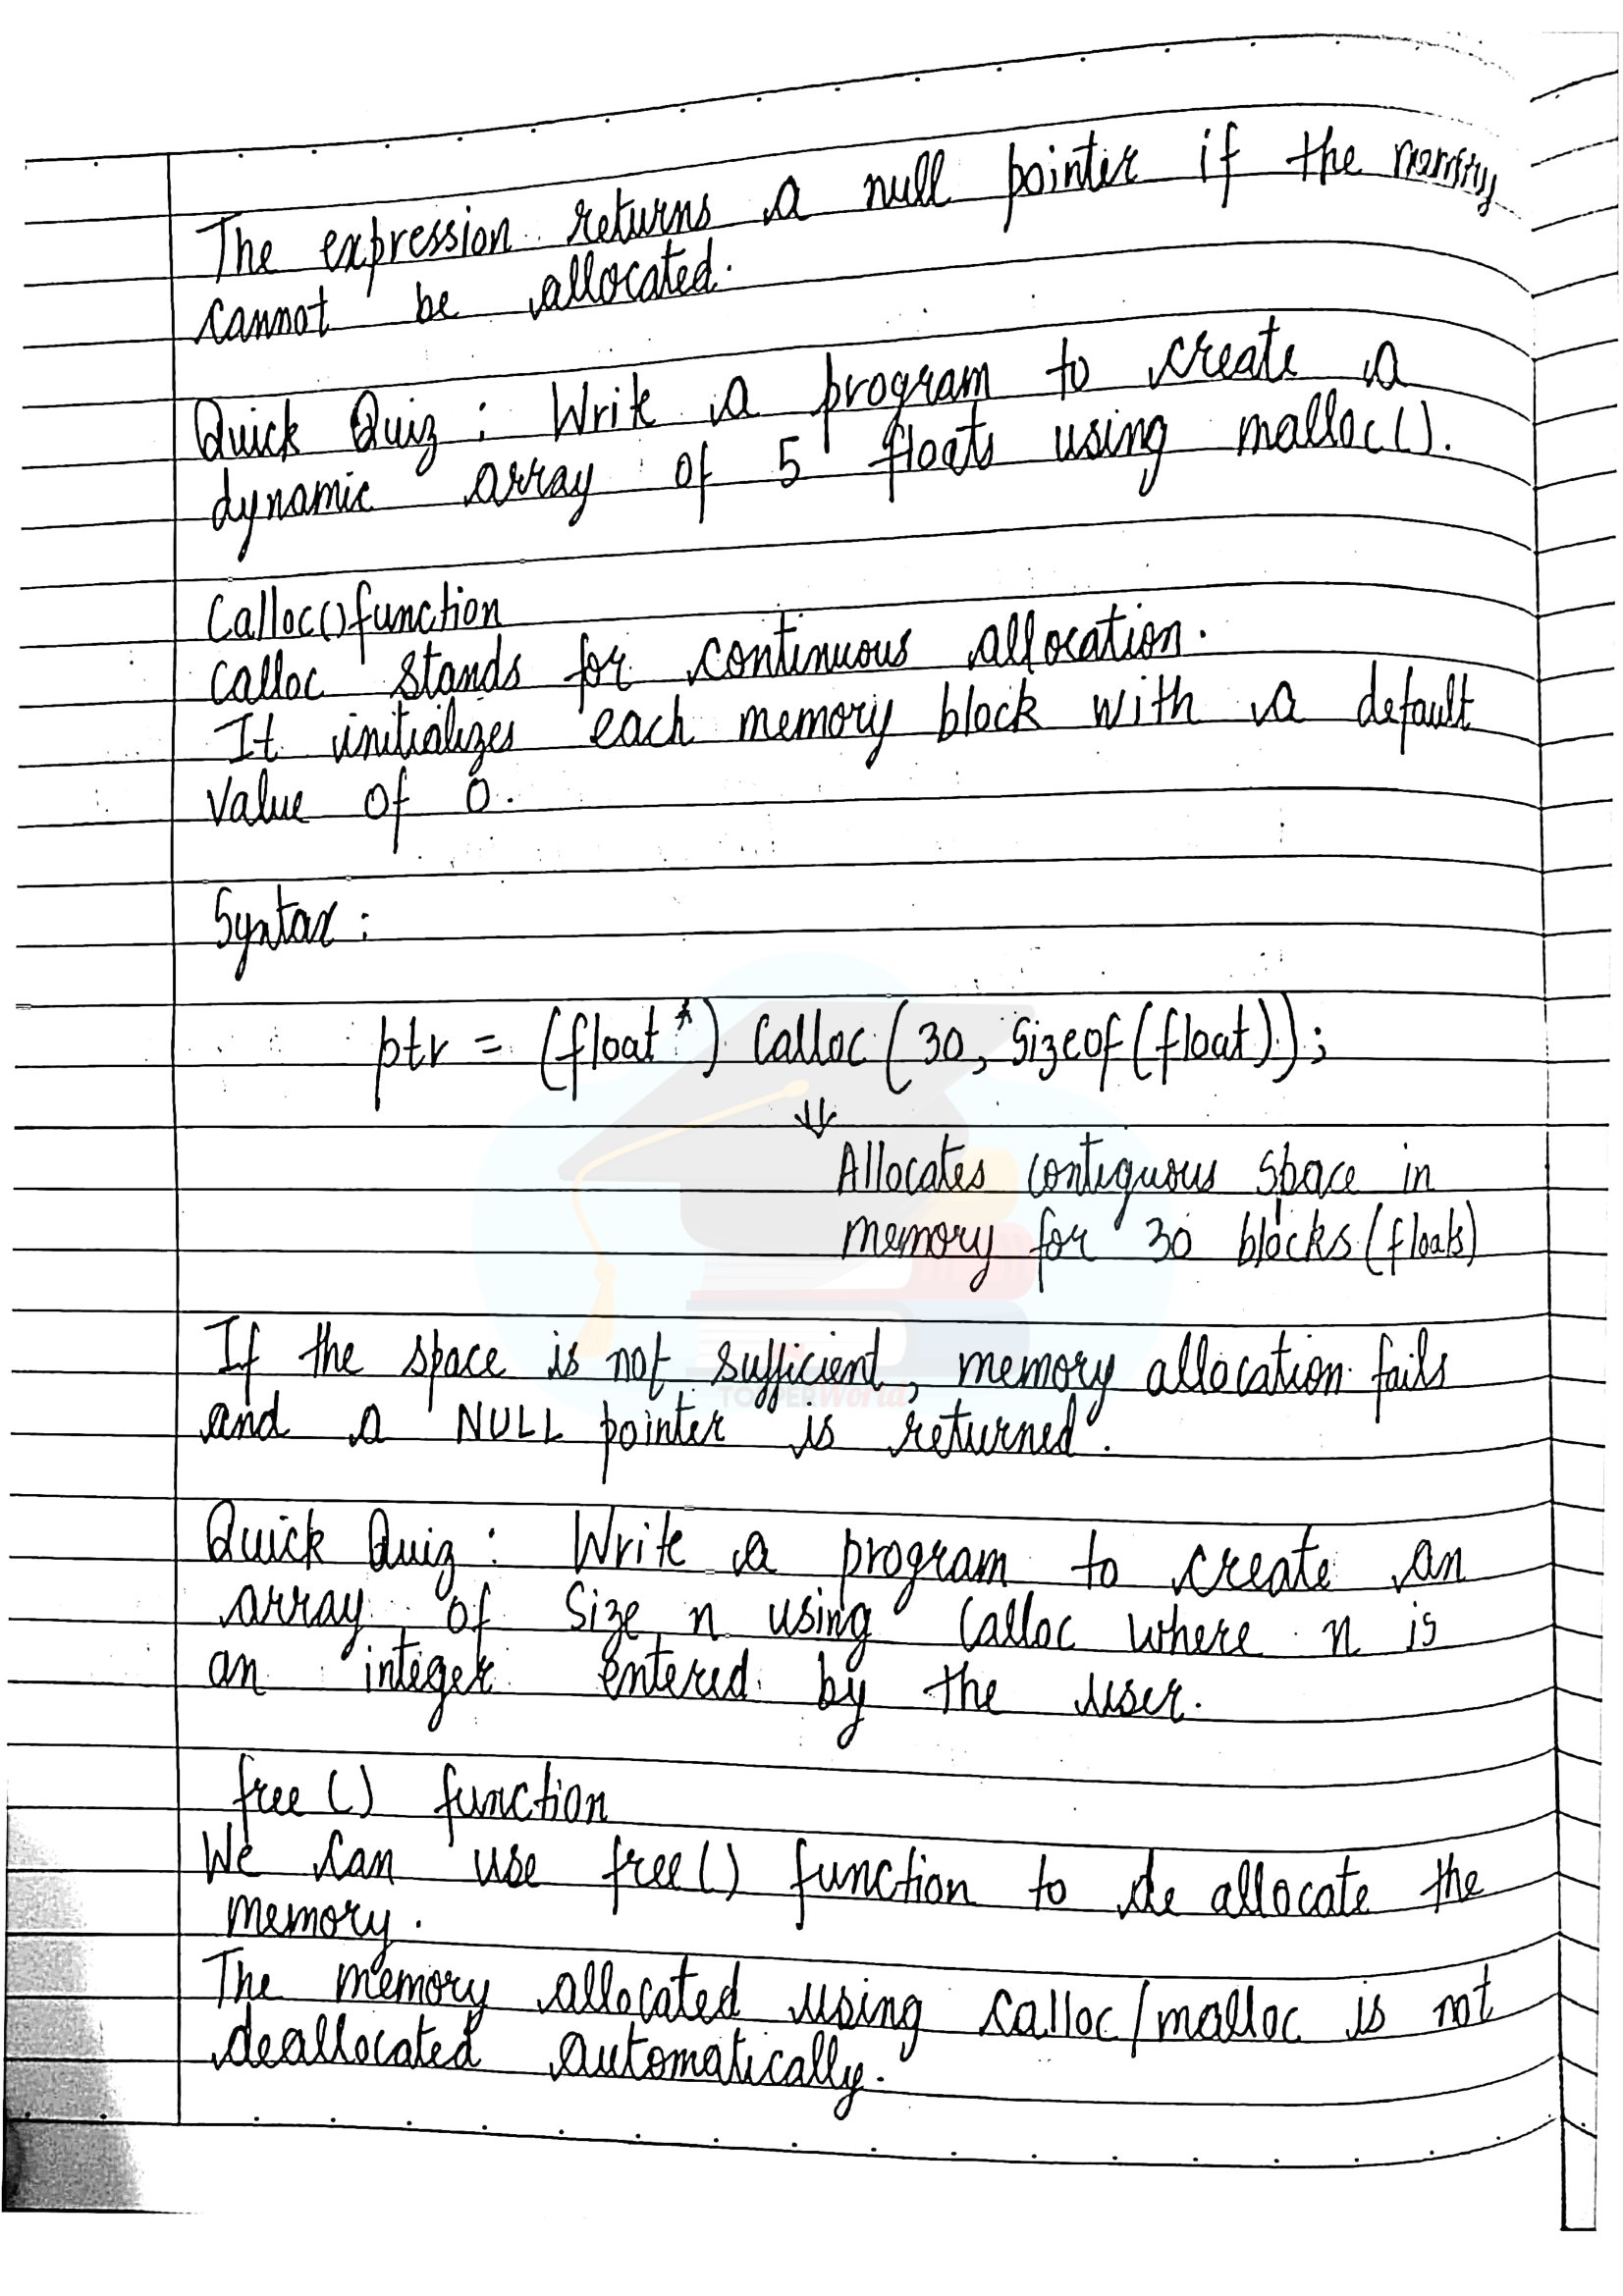 The expression returns a null pointer if the memory
cannot be allocated.
Quick Quiz : Write a program to create a
dynamic array of 5 floats using malloc().
Calloc() function
Calloc stands for continuous allocation.
It initializes each memory block with a default
value of 0.
Syntax :
ptr = (float *) Calloc (30, Sizeof (float));
↓
Allocates contiguous space in
memory for 30 blocks (floats)
If the space is not sufficient, memory allocation fails
TOPPERWorld
and a NULL pointer is returned.
Quick Quiz : Write a program to create an
array of size n using Calloc where n is
an integer entered by the user.
free () function
We can use free() function to de allocate the
memory.
The memory allocated using calloc/malloc is not
deallocated automatically.